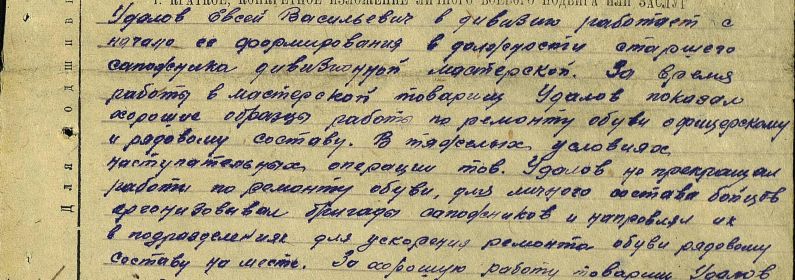 1. КРАТКОЕ, КОНКРЕТНОЕ ИЗЛОЖЕНИЕ ЛИЧНОГО БОЕВОГО ПОДВИГА ИЛИ ЗАСЛУГ
Удалов Евсей Васильевич в дивизии работает с
начала ее формирования в должности старшего
сапожника дивизионной мастерской. За время
работы в мастерской товарищ Удалов показал
хорошие образцы работы по ремонту обуви офицерскому
и рядовому составу. В тяжелых условиях
наступательных операции тов. Удалов не прекращал
работы по ремонту обуви, для личного состава бойцов
организовывал бригады сапожников и направлял их
в подразделениях для ускорения ремонта обуви рядовому
составу на месте. За хорошую работу товарищ Удалов
Для подшивки